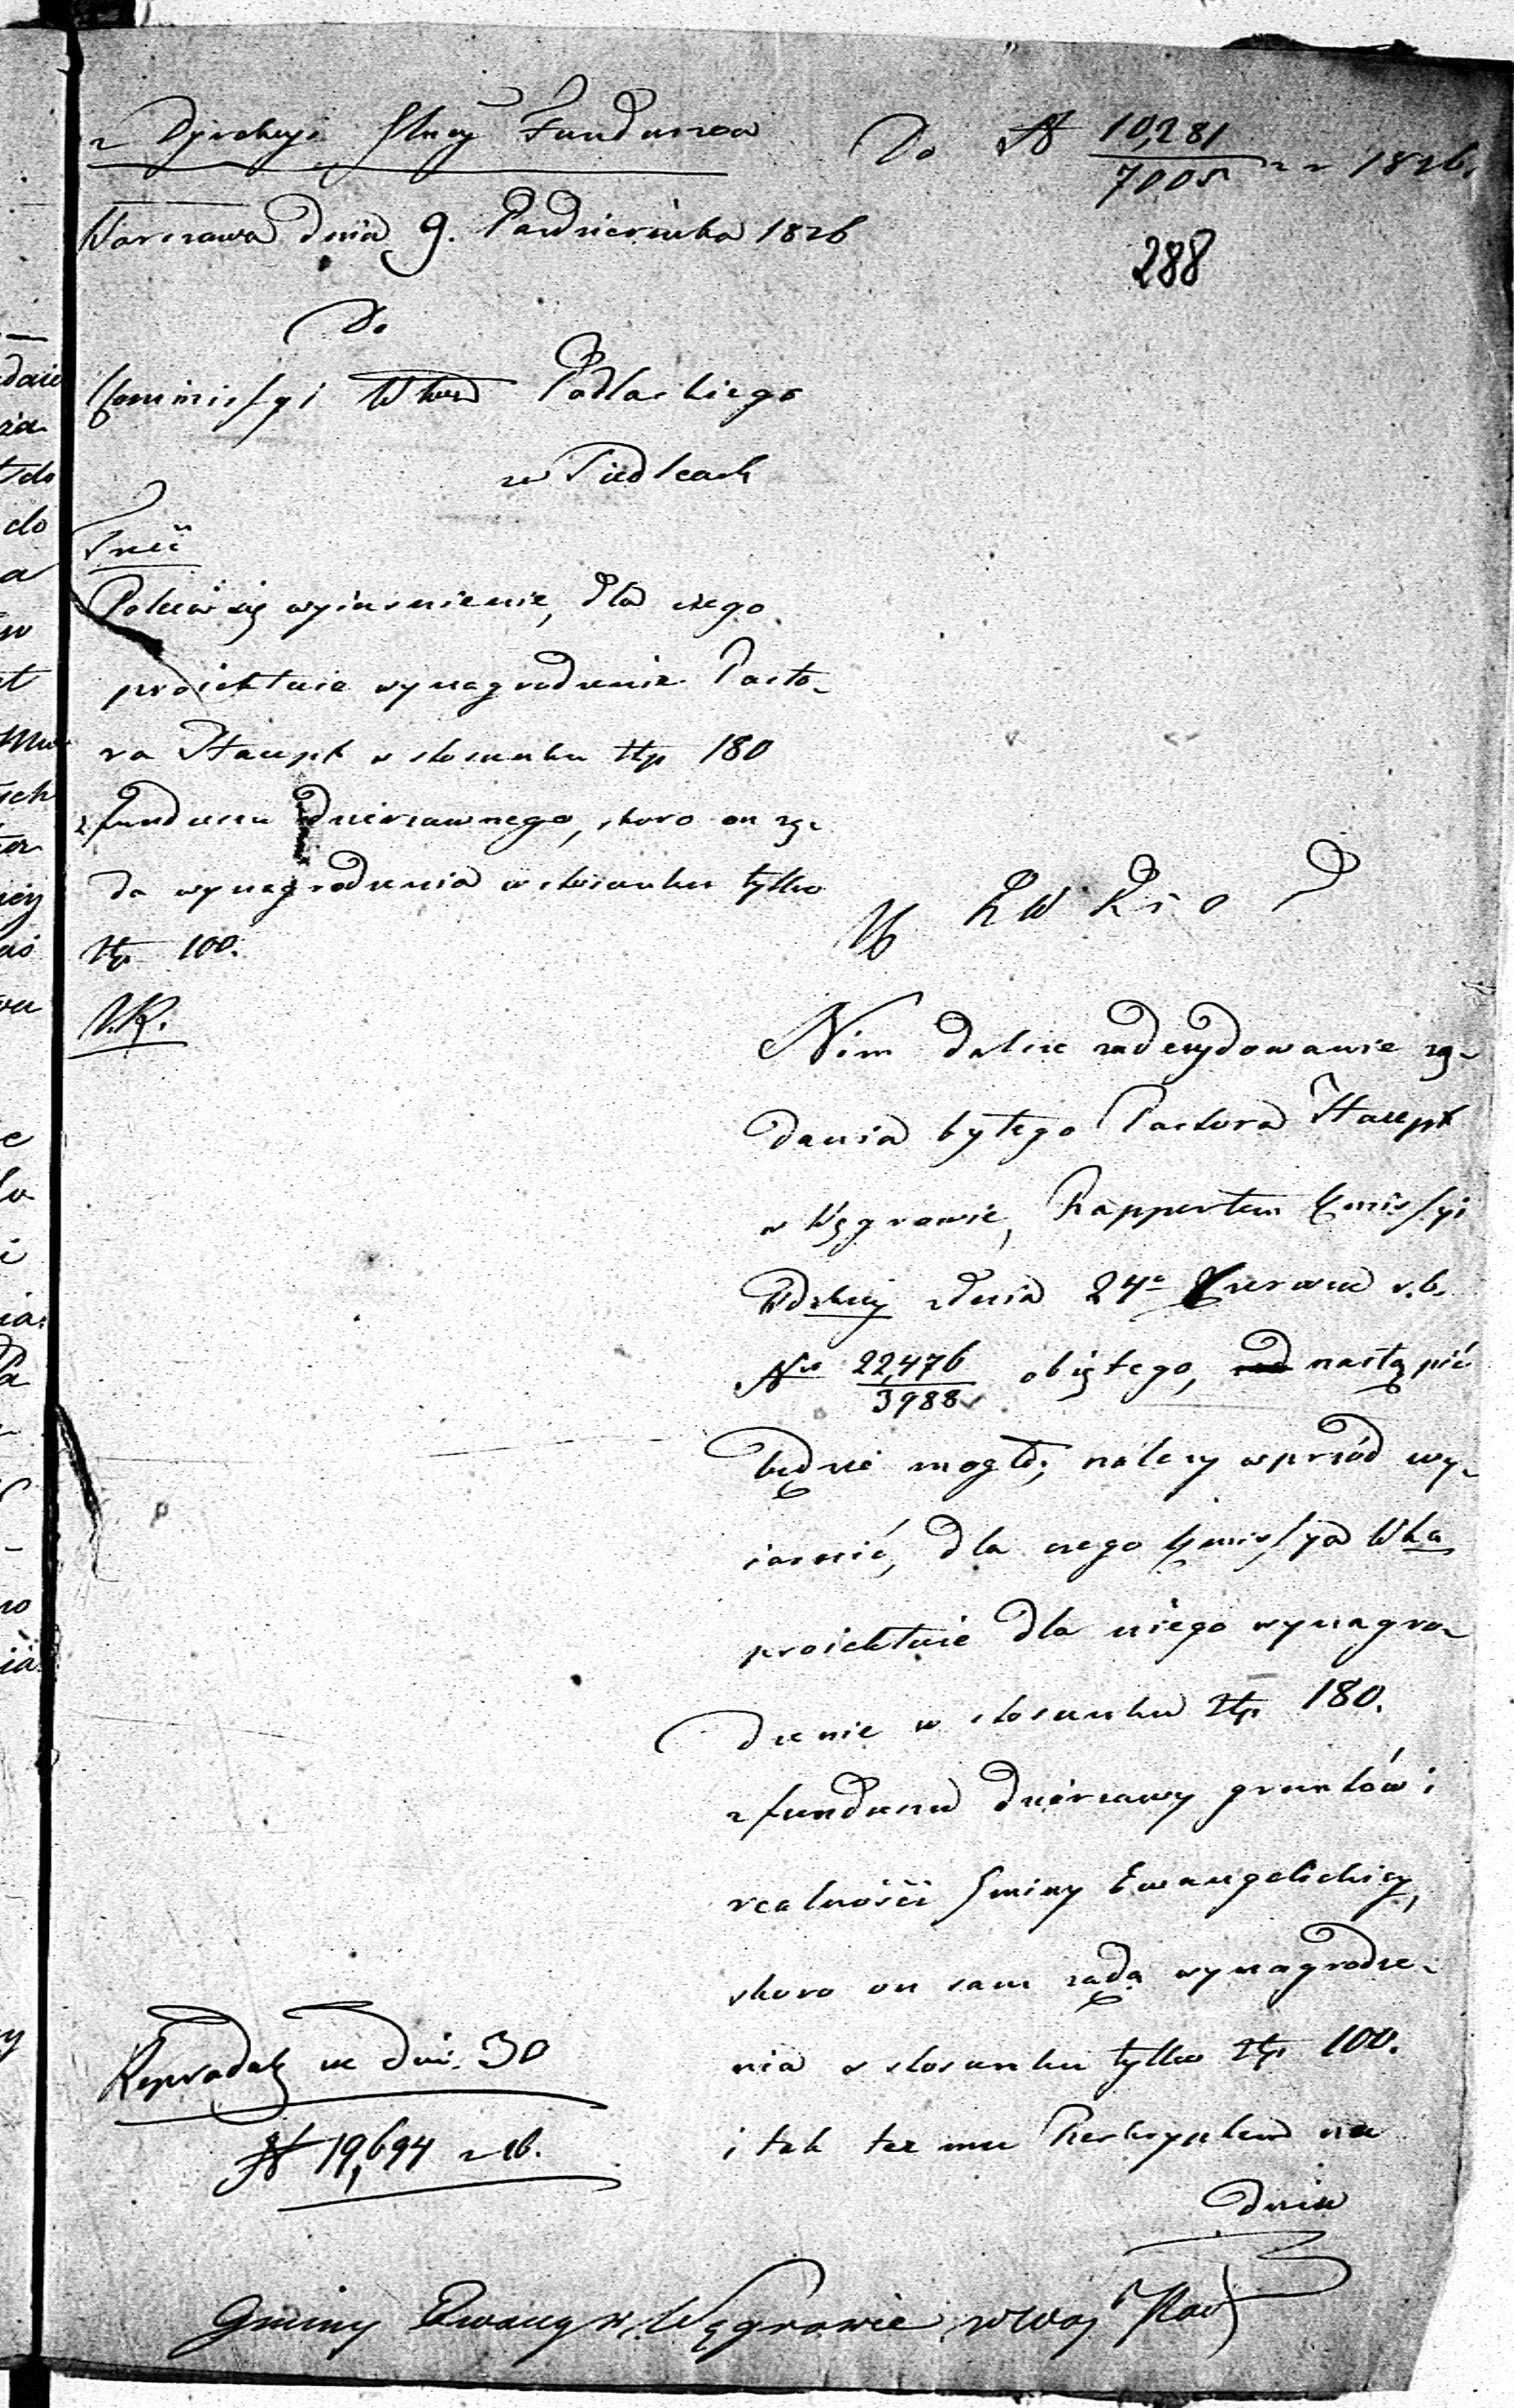 z Dyrekcyi Słney Funduszow
Do N 10,281/7005 1826.
Warszawa dnia 9. Pazdziernika 1826
288
Do
Commissyi Wdzkiey Podlaskiego
w Siedlcach
Treść
Poleca się wyiasnienie, dla czego
proiektuie wynagrodzenie Pasto-
ra Haupt w stosunku złp 180
z funduszu dzierzawnego, skoro on zą-
da wynagrodzenia w stosunku tylko
złp 100.
N.K.
K W R i O P
Nim dalsze zadecydowanie zą-
dania byłego Pastora Haupt
w Węgrowie, Rapportem Commissyi
Wdzkiey z dnia 24o Czerwca r.b.
Nro 22,476/3988 obiętego, nastąpić
będzie mogło, nalezy wprzód wy-
iasnić, dla czego Commissya Wka
proiektuie dla niego wynagro-
dzenie w stosunku złp 180.
z funduszu dzierzawy gruntów i
realności Gminy Ewangelickiey,
skoro on sam ząda wynagrodze-
nia w stosunku tylko złp 100.
i tak też mu Reskryptem na
dniu
Reproduk. na dni. 30
N 19,694 26.
Gminy Ewang w Węgrowie w Woj Pod